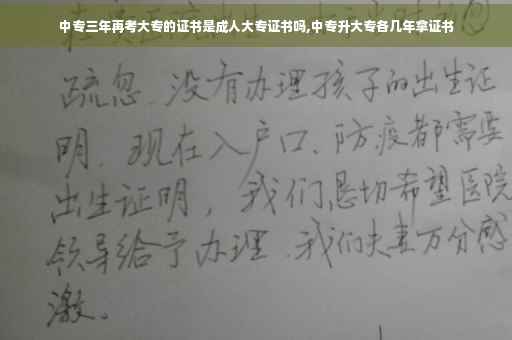 中专三年再考大专的证书是成人大专证书吗,中专升大专各几年拿证书
疏忽、没有办理孩子的出生证
明、现在入户口、防疫都需要
出生证明，我们恳切希望医院
领导给予办理、我们夫妻万分感
激。